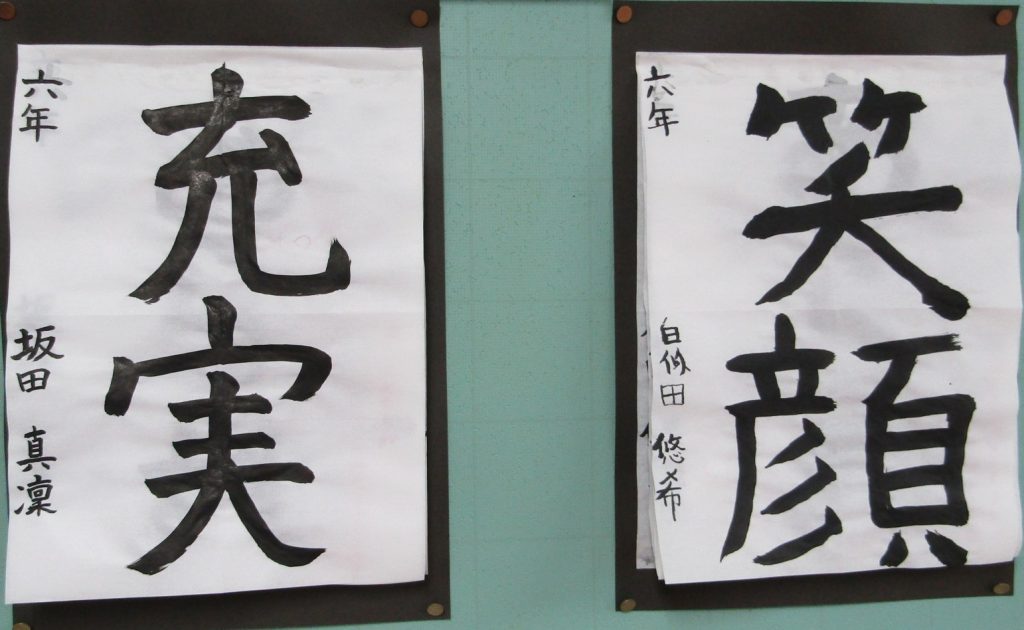 笑顔
六年
白似田 悠希
充実
六年
坂田 真凜